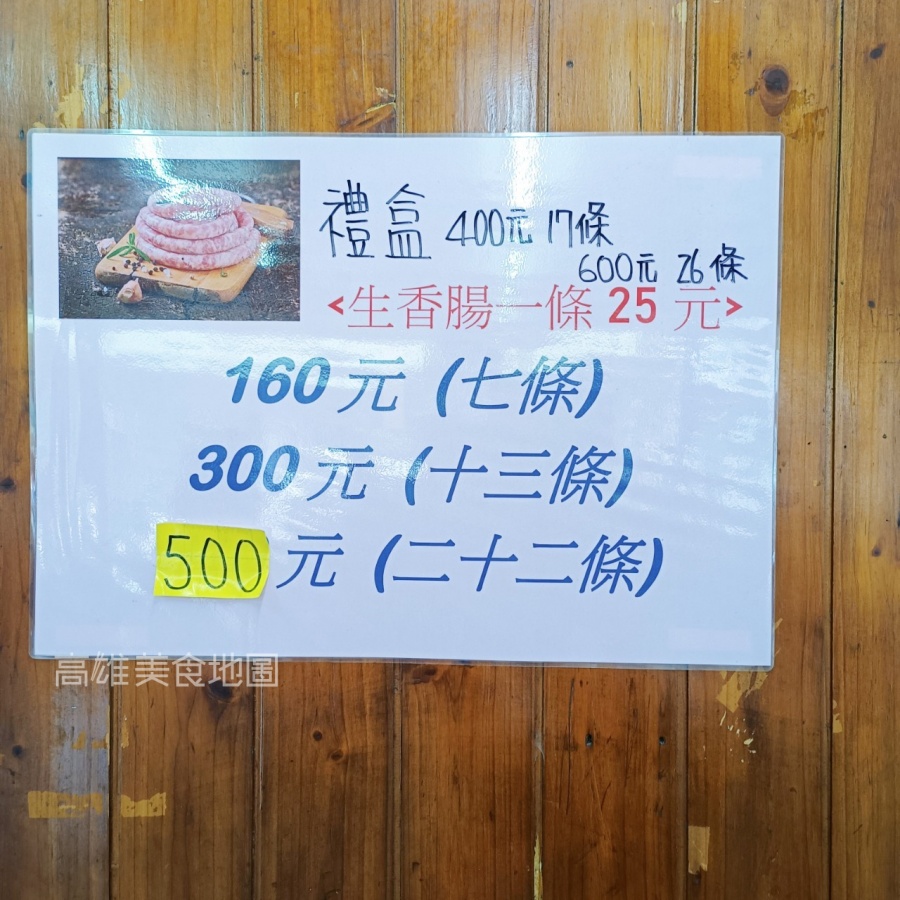 禮盒 400元 17條
600元 26條
<生香腸一條 25 元>
160 元 (七條)
300 元 (十三條)
500 元 (二十二條)
高雄美食地圖